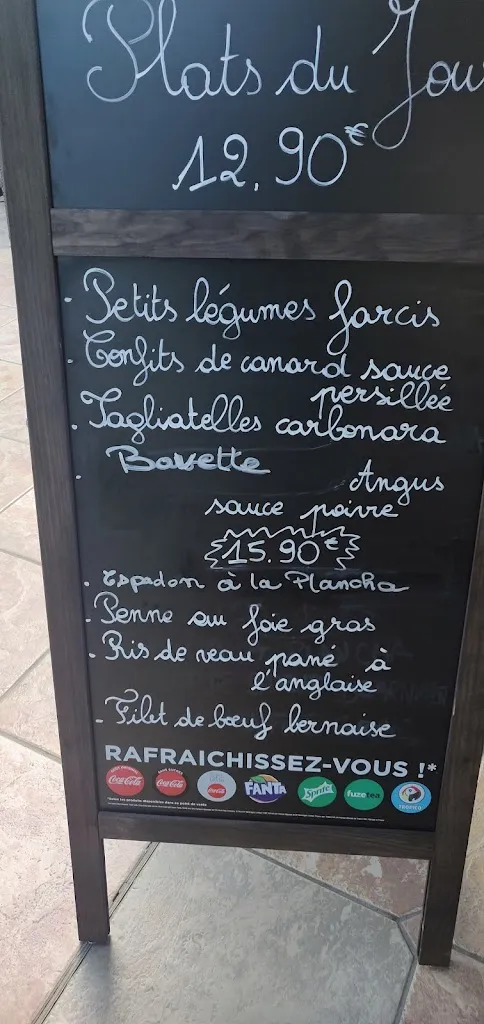 Plats du Jou
12.90€
- Petits légumes farcis
- Confits de canard sauce
persillée
- Tagliatelles carbonara
- Bavette Angus
sauce poivre
15.90€
- Espadon à la Plancha
- Penne au foie gras
- Ris de veau pané à
l'anglaise
- Filet de bœuf bernaise
RAFRAICHISSEZ-VOUS !*
Coca-Cola Coca-Cola Coca-Cola FANTA Sprite fuzetea TROPICO